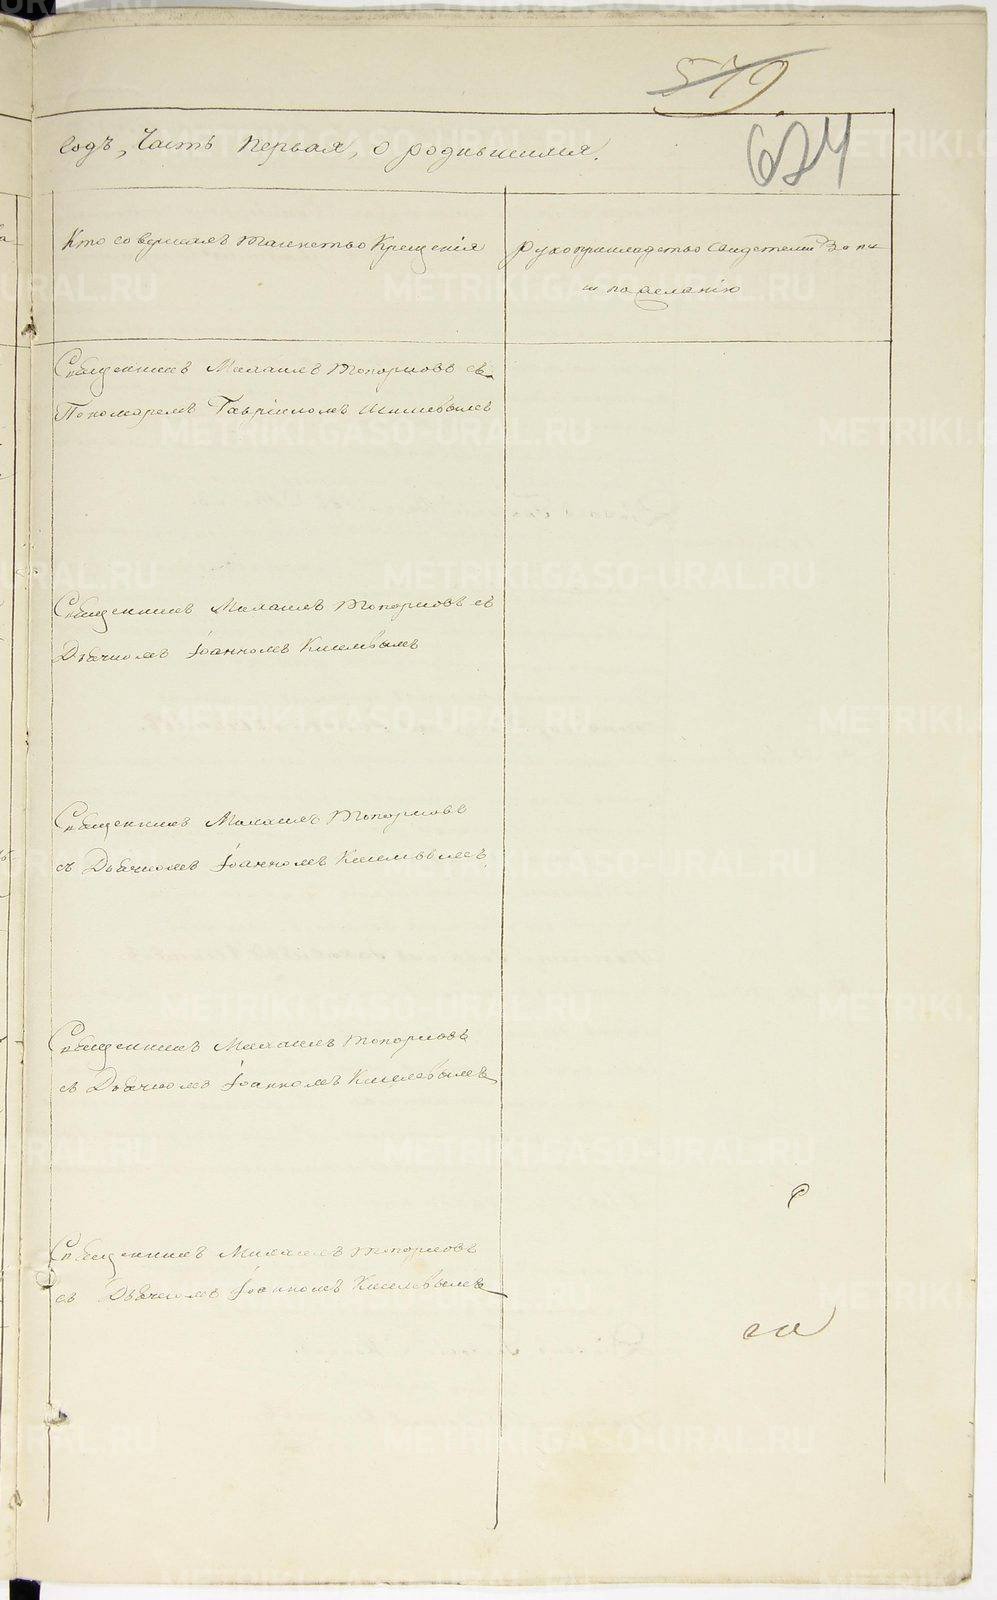 579
624
годъ, Часть первая, о родившихся.
Кто совершалъ таинство Крещенія
Рукоприкладство свидетелей запи
си по желанію
Священникъ Михаилъ Топорковъ съ
Пономаремъ Гавріиломъ
Священникъ Михаилъ Топорковъ съ
Дьячкомъ Іоанномъ Киселевымъ
Священникъ Михаилъ Топорковъ
съ Дьячкомъ Іоанномъ Киселевымъ
Священникъ Михаилъ Топорковъ
съ Дьячкомъ Іоанномъ Киселевымъ
Священникъ Михаилъ Топорковъ
съ Дьячкомъ Іоанномъ Киселевымъ
METRIKI.GASO-URAL.RU